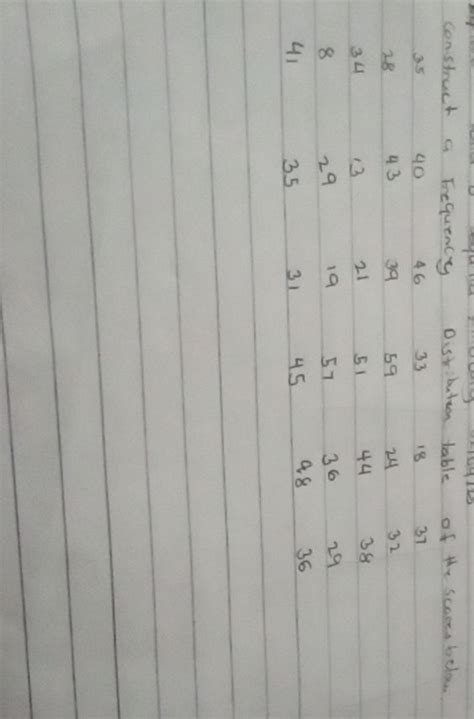 construct a Frequency Distribution table of the scores below.
35 40 46 33 18 37
28 43 39 59 24 32
34 13 21 51 44 38
8 29 19 57 36 29
41 35 31 45 98 36